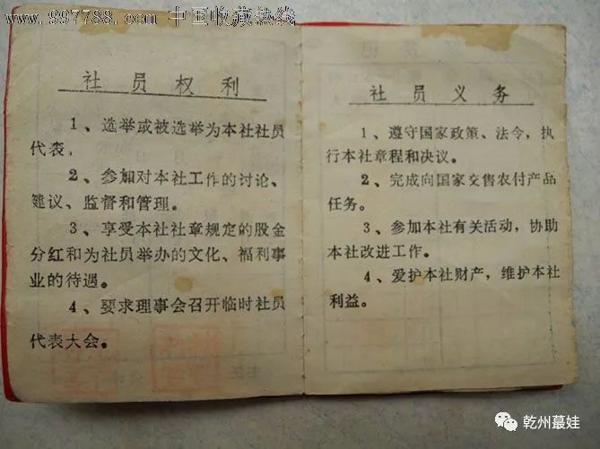 www.997788.com 中国收藏热线
社员权利
1、选举或被选举为本社社员
代表。
2、参加对本社工作的讨论、
建议、监督和管理。
3、享受本社社章规定的股金
分红和为社员举办的文化、福利事
业的待遇。
4、要求理事会召开临时社员
代表大会。
社员义务
1、遵守国家政策、法令,执
行本社章程和决议。
2、完成向国家交售农付产品
任务。
3、参加本社有关活动,协助
本社改进工作。
4、爱护本社财产,维护本社
利益。
乾州蕞娃